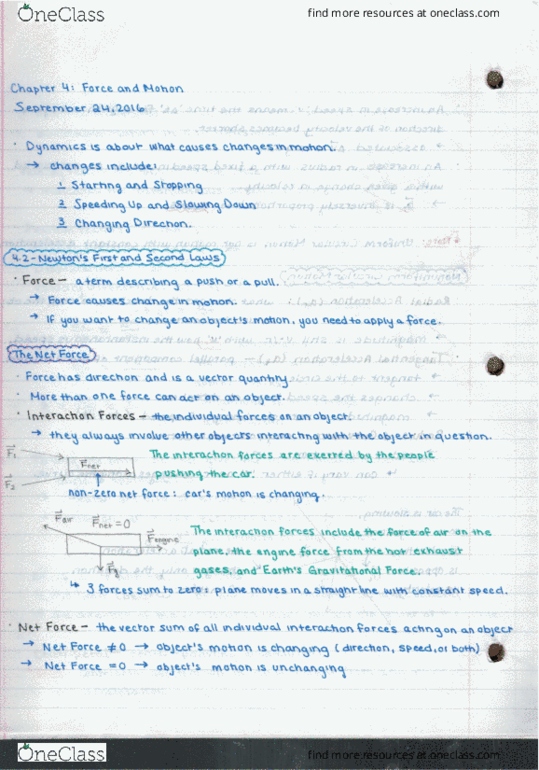 OneClass find more resources at oneclass.com
Chapter 4: Force and Motion
September, 24, 2016
· Dynamics is about what causes changes in motion.
→ changes include:
1 Starting and Stopping
2 Speeding Up and Slowing Down
3 Changing Direction.
4.2 - Newton's First and Second Laws
· Force - a term describing a push or a pull.
→ Force causes change in motion.
→ If you want to change an object's motion, you need to apply a force.
The Net Force
· Force has direction and is a vector quantity
· More than one force can act on an object.
· Interaction Forces - the individual forces on an object.
→ they always involve other objects interacting with the object in question.
F₁
F₂
Fnet
The interaction forces are exerted by the people
pushing the car.
non-zero net force: car's motion is changing.
Fair Fnet = 0
Fengine
Fg
The interaction forces include the force of air on the
plane, the engine force from the hot exhaust
gases, and Earth's Gravitational Force.
↳ 3 forces sum to zero: plane moves in a straight line with constant speed.
· Net Force - the vector sum of all individual interaction forces acting on an object
→ Net Force ≠ 0 → object's motion is changing (direction, speed, or both)
→ Net Force = 0 → object's motion is unchanging
OneClass find more resources at oneclass.com